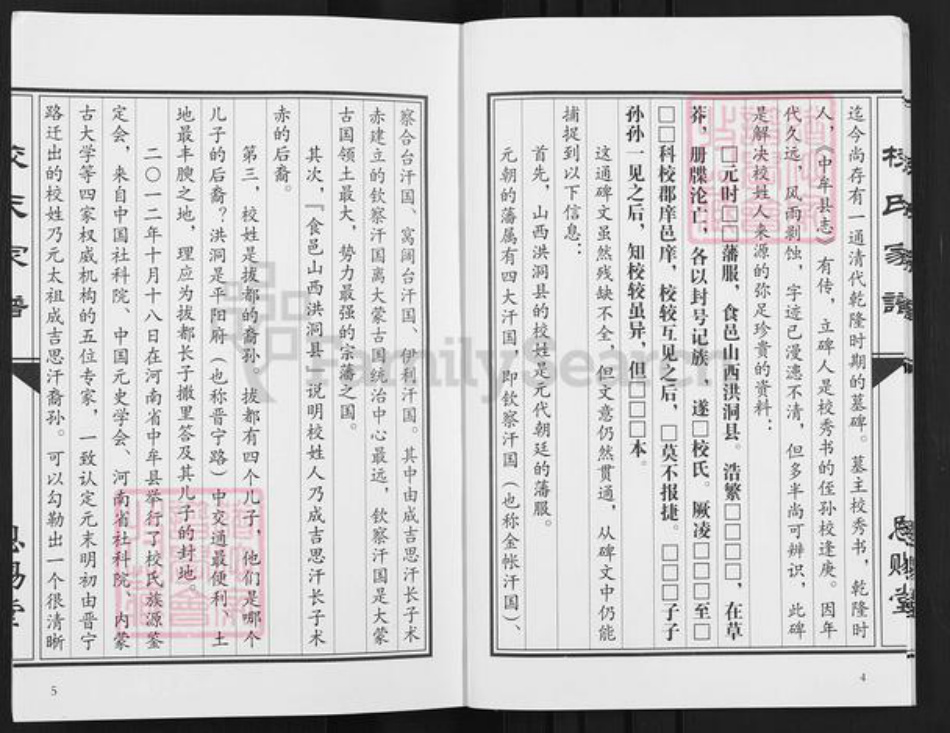 校氏家谱
恩赐堂
迄今尚存有一通清代乾隆时期的墓碑。墓主校秀书，乾隆时
人，《中牟县志》有传，立碑人是校秀书的侄孙校逢庚。因年
代久远，风雨剥蚀，字迹已漫漶不清，但多半尚可辨识，此碑
是解决校姓人来源的弥足珍贵的资料：
□元时□□藩服，食邑山西洪洞县。浩繁□□□□，在草
莽，册牒沦亡，各以封号记族，遂□校氏。厥凌□□□□至□
□□科校郡庠邑庠，校较互见之后，□莫不报捷。□□□子子
孙孙一见之后，知校较虽异，但□□□本。
这通碑文虽然残缺不全，但文意仍然贯通，从碑文中仍能
捕捉到以下信息：
首先，山西洪洞县的校姓是元代朝廷的藩服。
元朝的藩属有四大汗国，即钦察汗国（也称金帐汗国）、
4
察合台汗国、窝阔台汗国、伊利汗国。其中由成吉思汗长子术
赤建立的钦察汗国离大蒙古国统治中心最远，钦察汗国是大蒙
古国领土最大，势力最强的宗藩之国。
其次，「食邑山西洪洞县」说明校姓人乃成吉思汗长子术
赤的后裔。
第三，校姓是拔都的裔孙，拔都有四个儿子，他们是哪个
儿子的后裔？洪洞是平阳府（也称晋宁路）中交通最便利、土
地最丰腴之地，理应为拔都长子撒里答及其儿子的封地。
二〇一二年十月十八日在河南省中牟县举行了校氏族源鉴
定会，来自中国社科院、中国元史学会、河南省社科院、内蒙
古大学等四家权威机构的五位专家，一致认定元末明初由晋宁
路迁出的校姓乃元太祖成吉思汗裔孙。可以勾勒出一个很清晰
校氏家谱
恩赐堂
5
FamilySearch